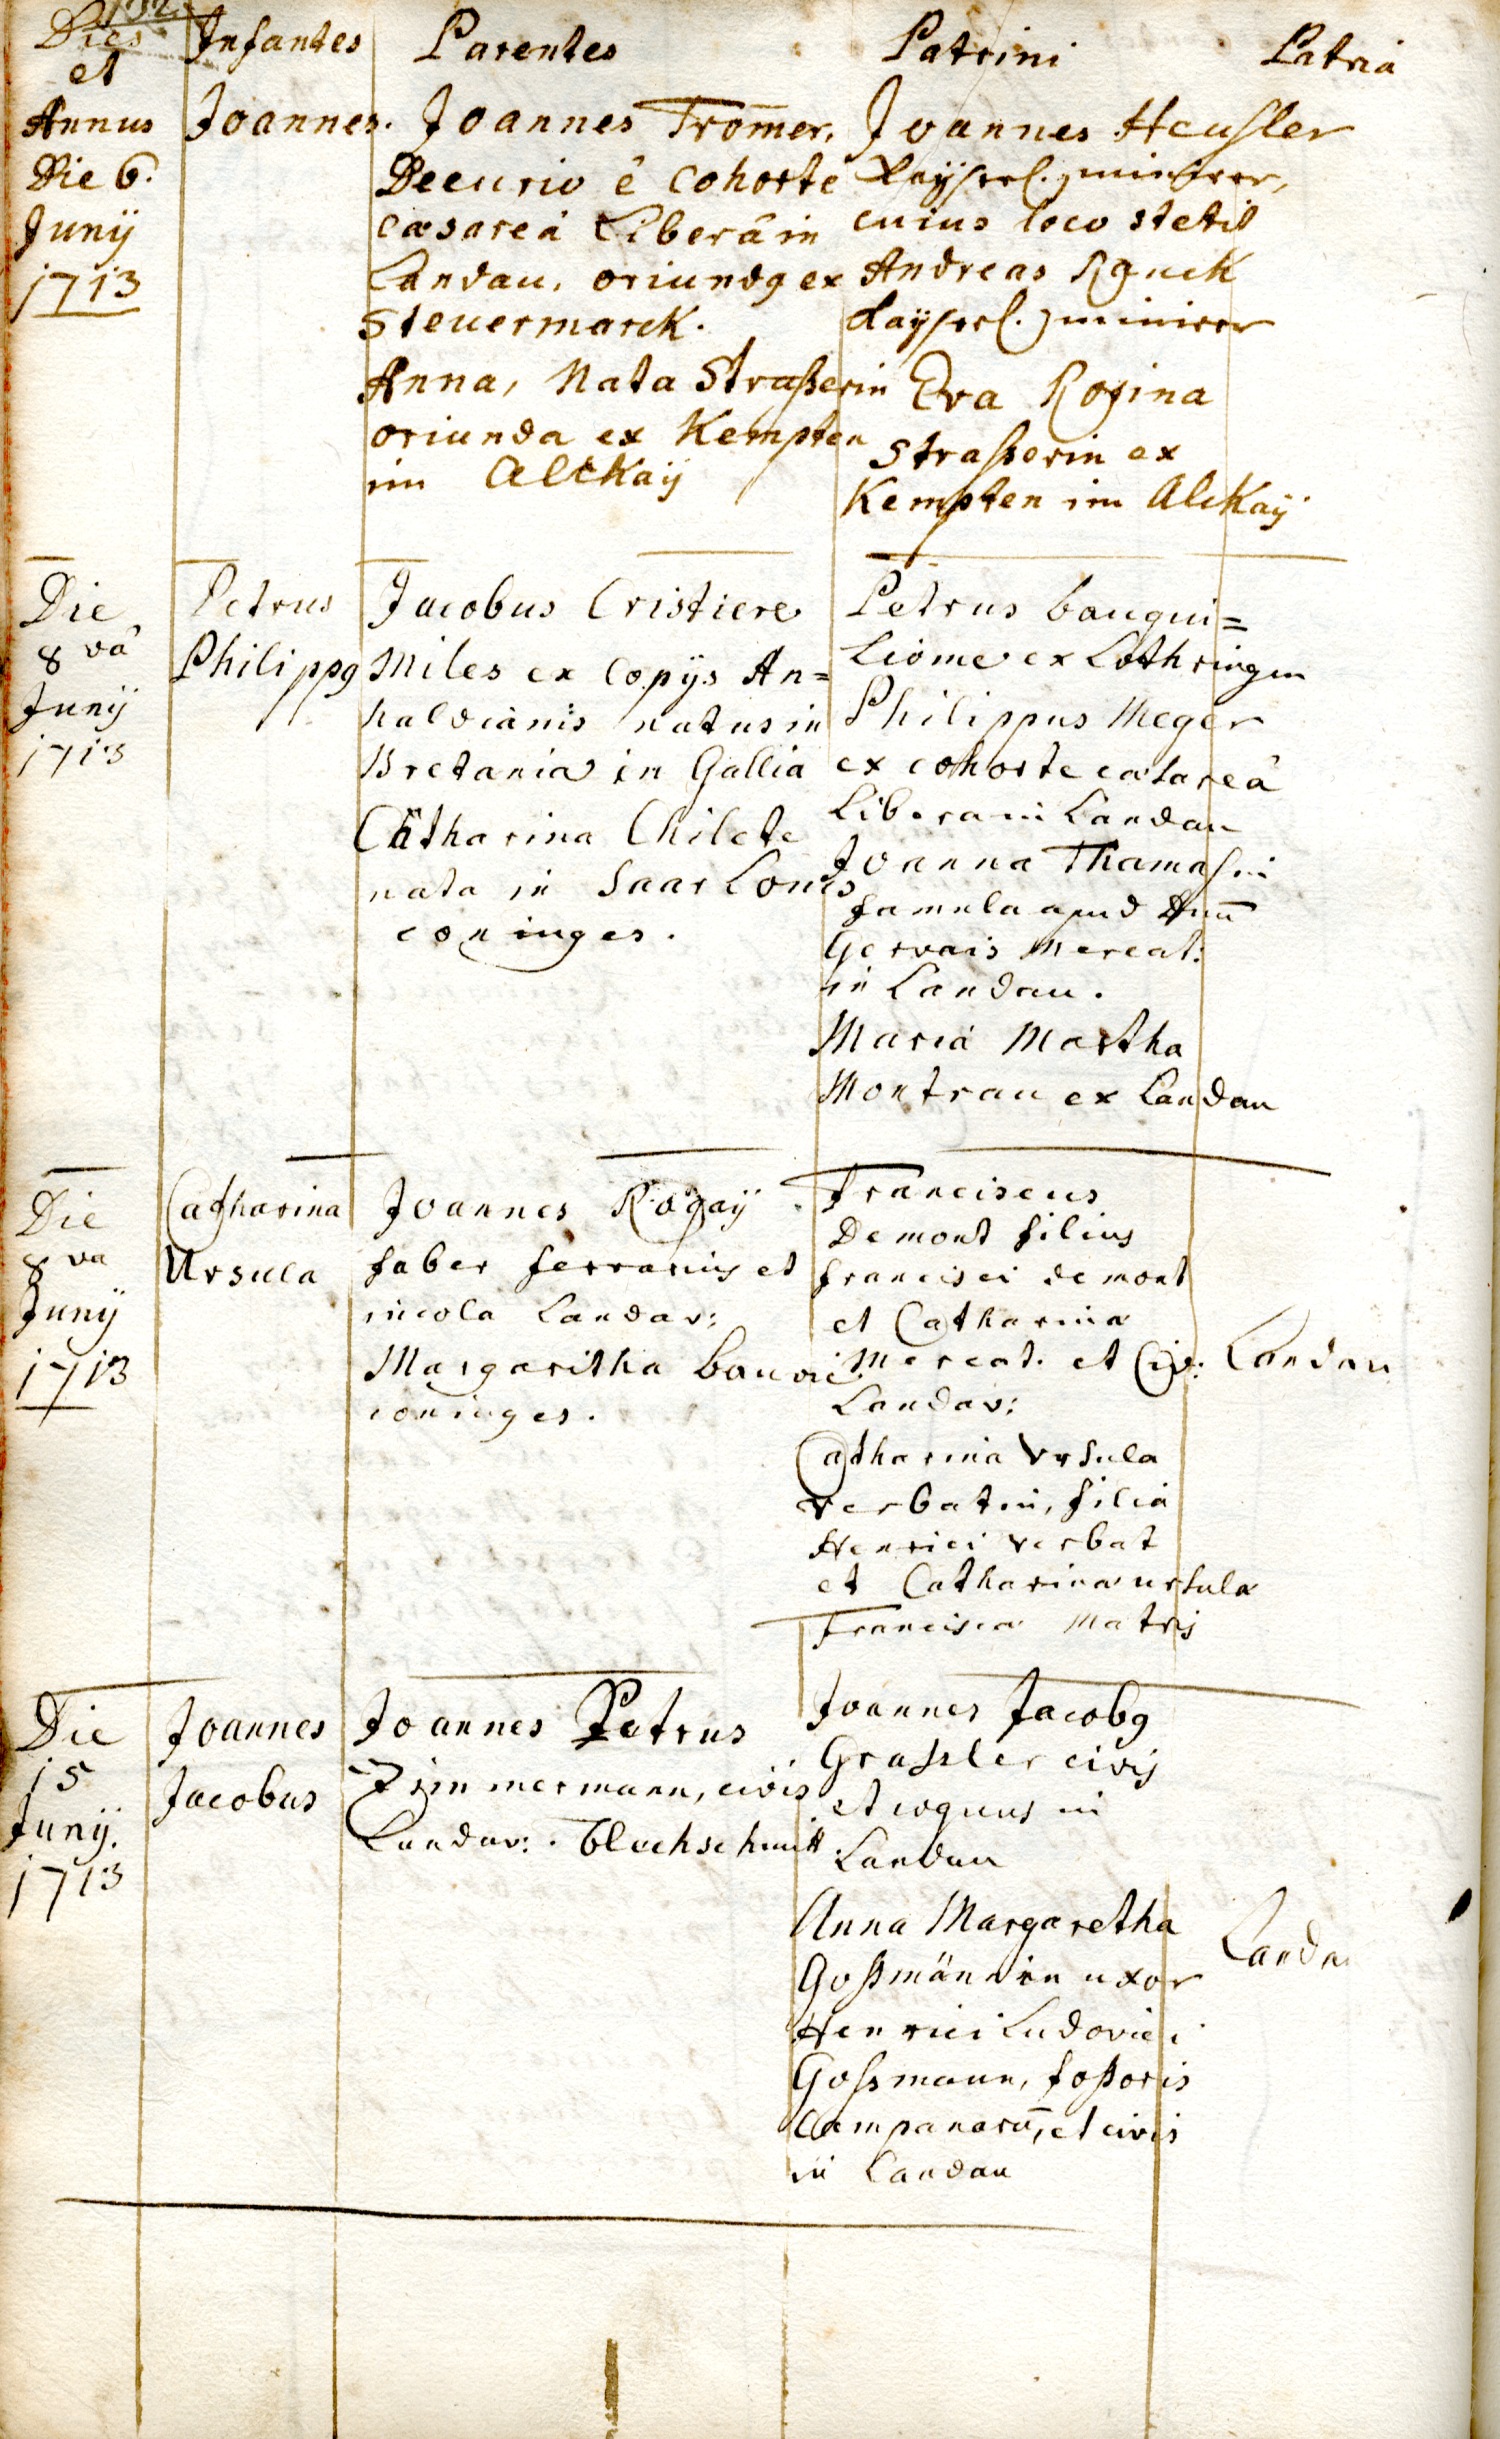 132.
Dies et Annus
Infantes
Parentes
Patrini
Patria
Die 6.
Junij
1713
Joannes.
Joannes Trom̄er,
Decurio ê Cohorte
Cæsareâ Liberâ in
Landau, oriundg ex
Steuermarck.
Anna, Nata Straßerin
oriunda ex Kempten
im Alckaÿ
Joannes Heusler
Kaÿserl. minirer,
cuius loco stetit
Andreas
Kaÿserl. minirer
Eva Rosina
Straßerin ex
Kempten im Alckaÿ
Die
8 vâ
Junij
1713
Petrus
Philippg
Jacobus Cristiere
Miles ex Copijs An=
haldianis natus in
Bretania in Gallia
Catharina Chilete
nata in Saar Louis
coniuges.
Petrus bauqui=
Liome ex Lothringen
Philippus Meger
ex cohorte cæsareâ
Libera in Landau
Joanna Thamasin
famula apud Dnū
Gervais Mercat:
in Landau.
Maria Martha
Montrau ex Landau
Die
8 va
Junij
1713
Catharina
Ursula
Joannes Rogaÿ
faber ferrarius et
incola Landav:
Margaritha bauvie.
coniuges.
Franciscus
Demont filius
francisci demont
et Catharina
Mercat. et Civ:
Landav:
Catharina Vrsula
verbatin, filia
Henrici verbat
et Catharina ursula
Francisca Matris
Landau
Die
15
Junij.
1713
Joannes
Jacobus
Joannes Petrus
Zimmermann, civis
Landav: . blechschmitt
Joannes Jacobg
Grassler civis
et coquus in
Landau
Anna Margaretha
Goßmännin uxor
Henrici Ludovici
Gossmann, foßoris
Campanarū, et civis
in Landau
Landau